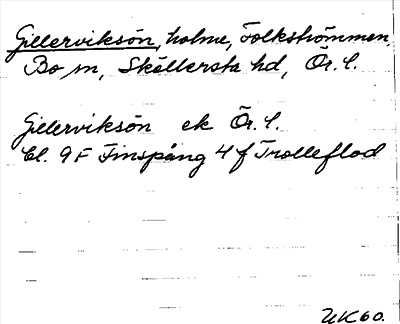 Gillerviksön, holme, Folkströmmen,
Bo sn, Sköllersta hd, Ör. l.
Gillerviksön ek Ör. l.
Bl. 9F Finspång 4f Trolleflod
UK60.